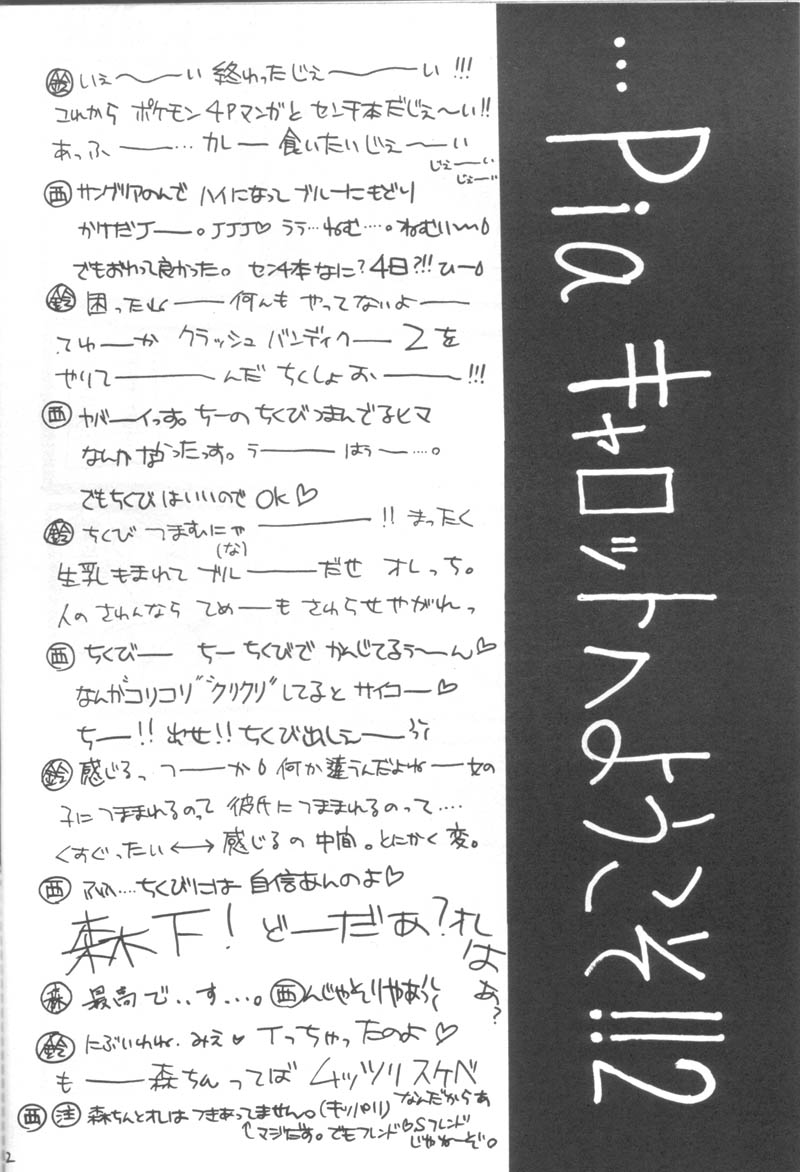 …Piaキャロットへようこそ!!2
鈴 いぇ〜〜い 終わったじぇ〜〜い!!!
これから ポケモン4Pマンガと センチ本だじぇ〜い!!
あっふ――… カレー 食いたいじぇ〜〜い
じぇ〜い
じぇ〜い
西 サングリアのんで ハイになって ブルーにもどり
かけだJ―。JJJ♡ ララ…ねむ…。ねむい〜
でもおわって良かった。センチ本なに?4日?!! ひー
鈴 困ったね―― 何んも やってないよ――
てゆーか クラッシュ バンディクー 2を
やりて――――んだ ちくしょお――――!!!
西 ヤバーイっす。ちーの ちくびつまんでるヒマ
なんかなかったっす。う―― はぅ〜…。
でもちくびはいいので OK♡
鈴 ちくび つまむにゃ――――!! まったく
(な)
生乳もまれて ブル――だぜ オレっち。
人の さわんなら てめーも さわらせやがれっ
西 ちくびー ちー ちくびで かんじてるぅ〜ん♡
なんかコリコリ クリクリしてると サイコー♡
ち―!! 出せ!! ちくび出しぇ―
鈴 感じるっ つ――か 何か違うんだよね――女の
子につままれるのって 彼氏につままれるのって….
くすぐったい ←→ 感じるの中間。とにかく変。
西 ふふ….ちくびには 自信あんのよ♡
森木下! どーだあ?れ
はぁ?
森 最高で‥す…。 西 んじゃそりゃあ
鈴 にぶいわね. みえ♥ イっちゃったのよ♡
も―― 森ちんってば ムッツリ スケベ
なんだからぁ
西 注 森ちんとオレは つきあってません。(キッパリ)
↑マジだす。でもフレンド♡Sフレンド
じゃねーぞ。
2